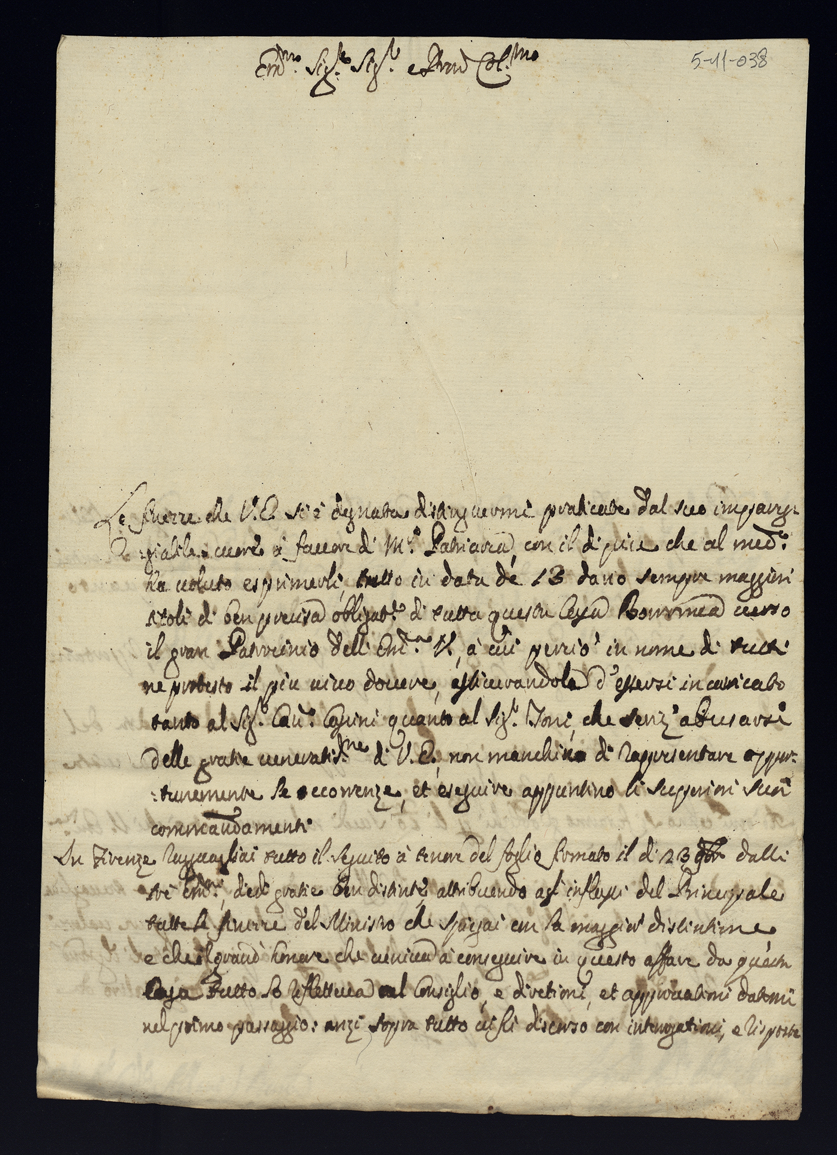 5-11-038
Em.mo Sig.re Sig.re e Pron Col.mo
Le finezze che V.E. si è degnata distinguermi praticate dal suo impareg-
giabile cuore à favore di M.r Patriarca, con il di più che al med.o
ha voluto esprimerli, tutto in data de 13 dano sempre maggiori
titoli di ben precisa obligat.e di tutta questa Casa verso
il gran Patrocinio dell Em.a V., à cui perciò in nome di tutti
ne protesto il più vivo dovere, assicurandola d'essersi incaricato
tanto al Sig.r Cav.r quanto al Sig.r che senz'abusarsi
delle gratie veneratis.me di V.E. non manchino di rappresentare oppor-
:tunemente le occorrenze, et eseguire appuntino li superiori suoi
commandamenti
In Firenze ragguagliai tutto il seguito à tenore del foglio firmato il di 23 dalli
tré Em.mi, diedi gratie ben distinte attribuendo agl'influssi del Principale
tutte le finezze del Ministro che spiegai con le maggiori distintioni
e che il grand'honore che veniva à conseguire in questo affare da questa
Casa tutto si rifletteva al Consiglio, e direttioni, et approvationi datomi
nel primo passaggio: anzi sopra tutto ciò li discorso con interrogationi, e risposte